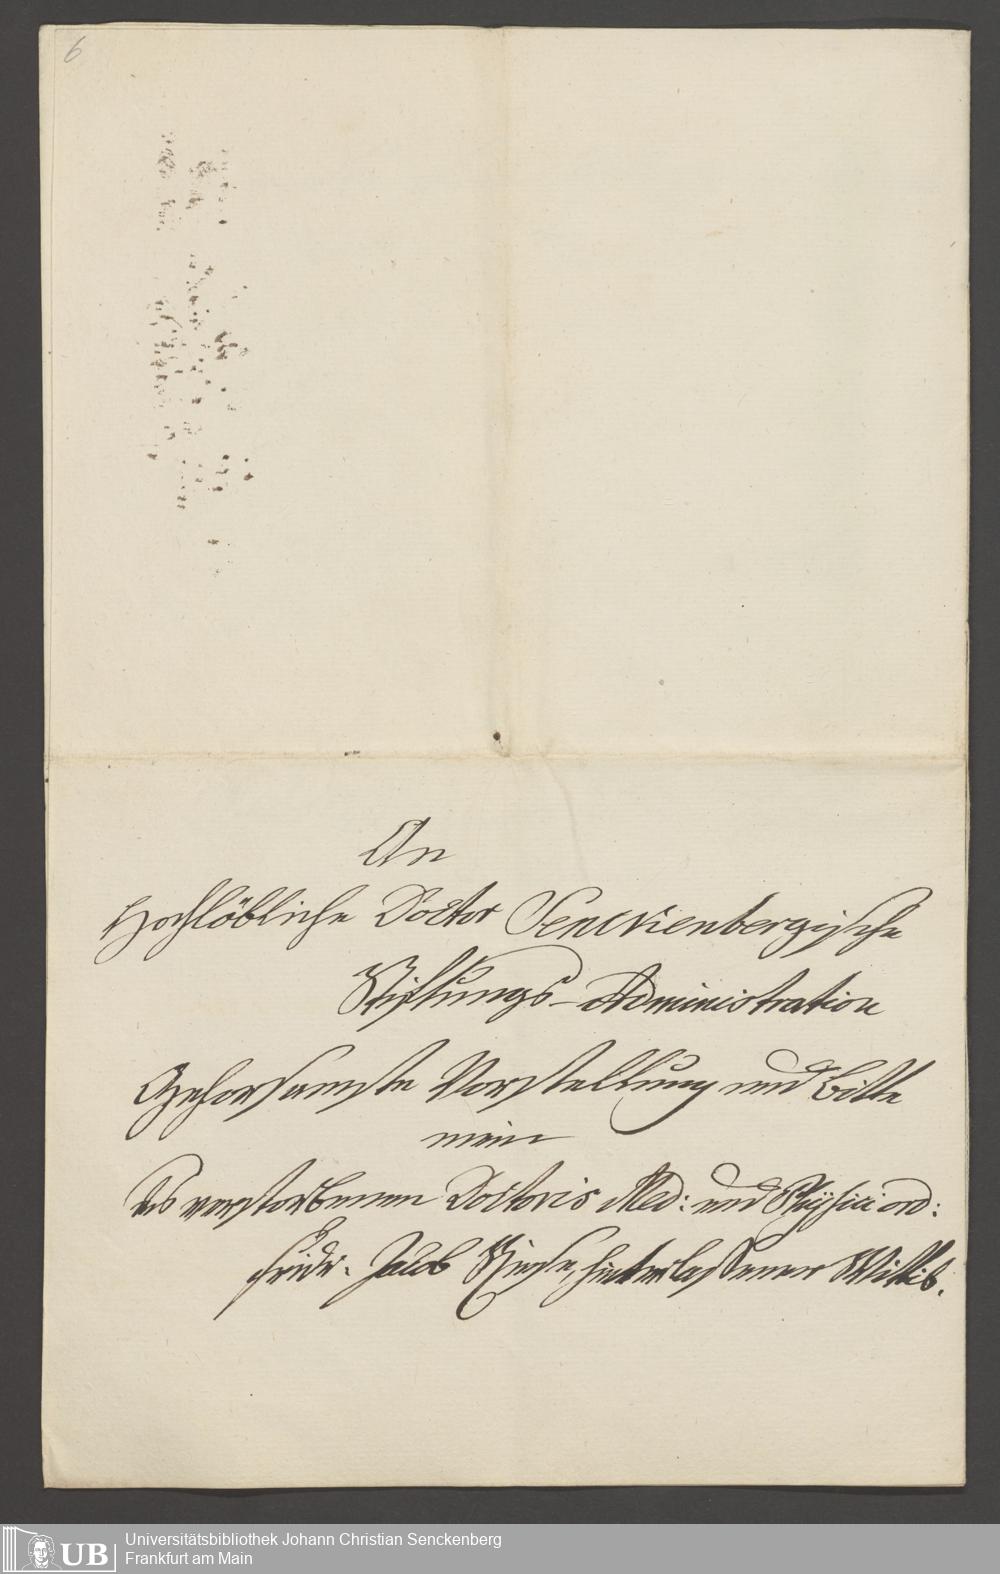 6
An
Hochlöbliche Doctor Senckenbergische
Stiftungs-Administration
Gehorsamste Vorstellung und Bitte
mein
des verstorbenen Doctoris Med: und Physici ord:
Fridr. Jacob hinterlassener Wittib.
UB
Universitätsbibliothek Johann Christian Senckenberg
Frankfurt am Main